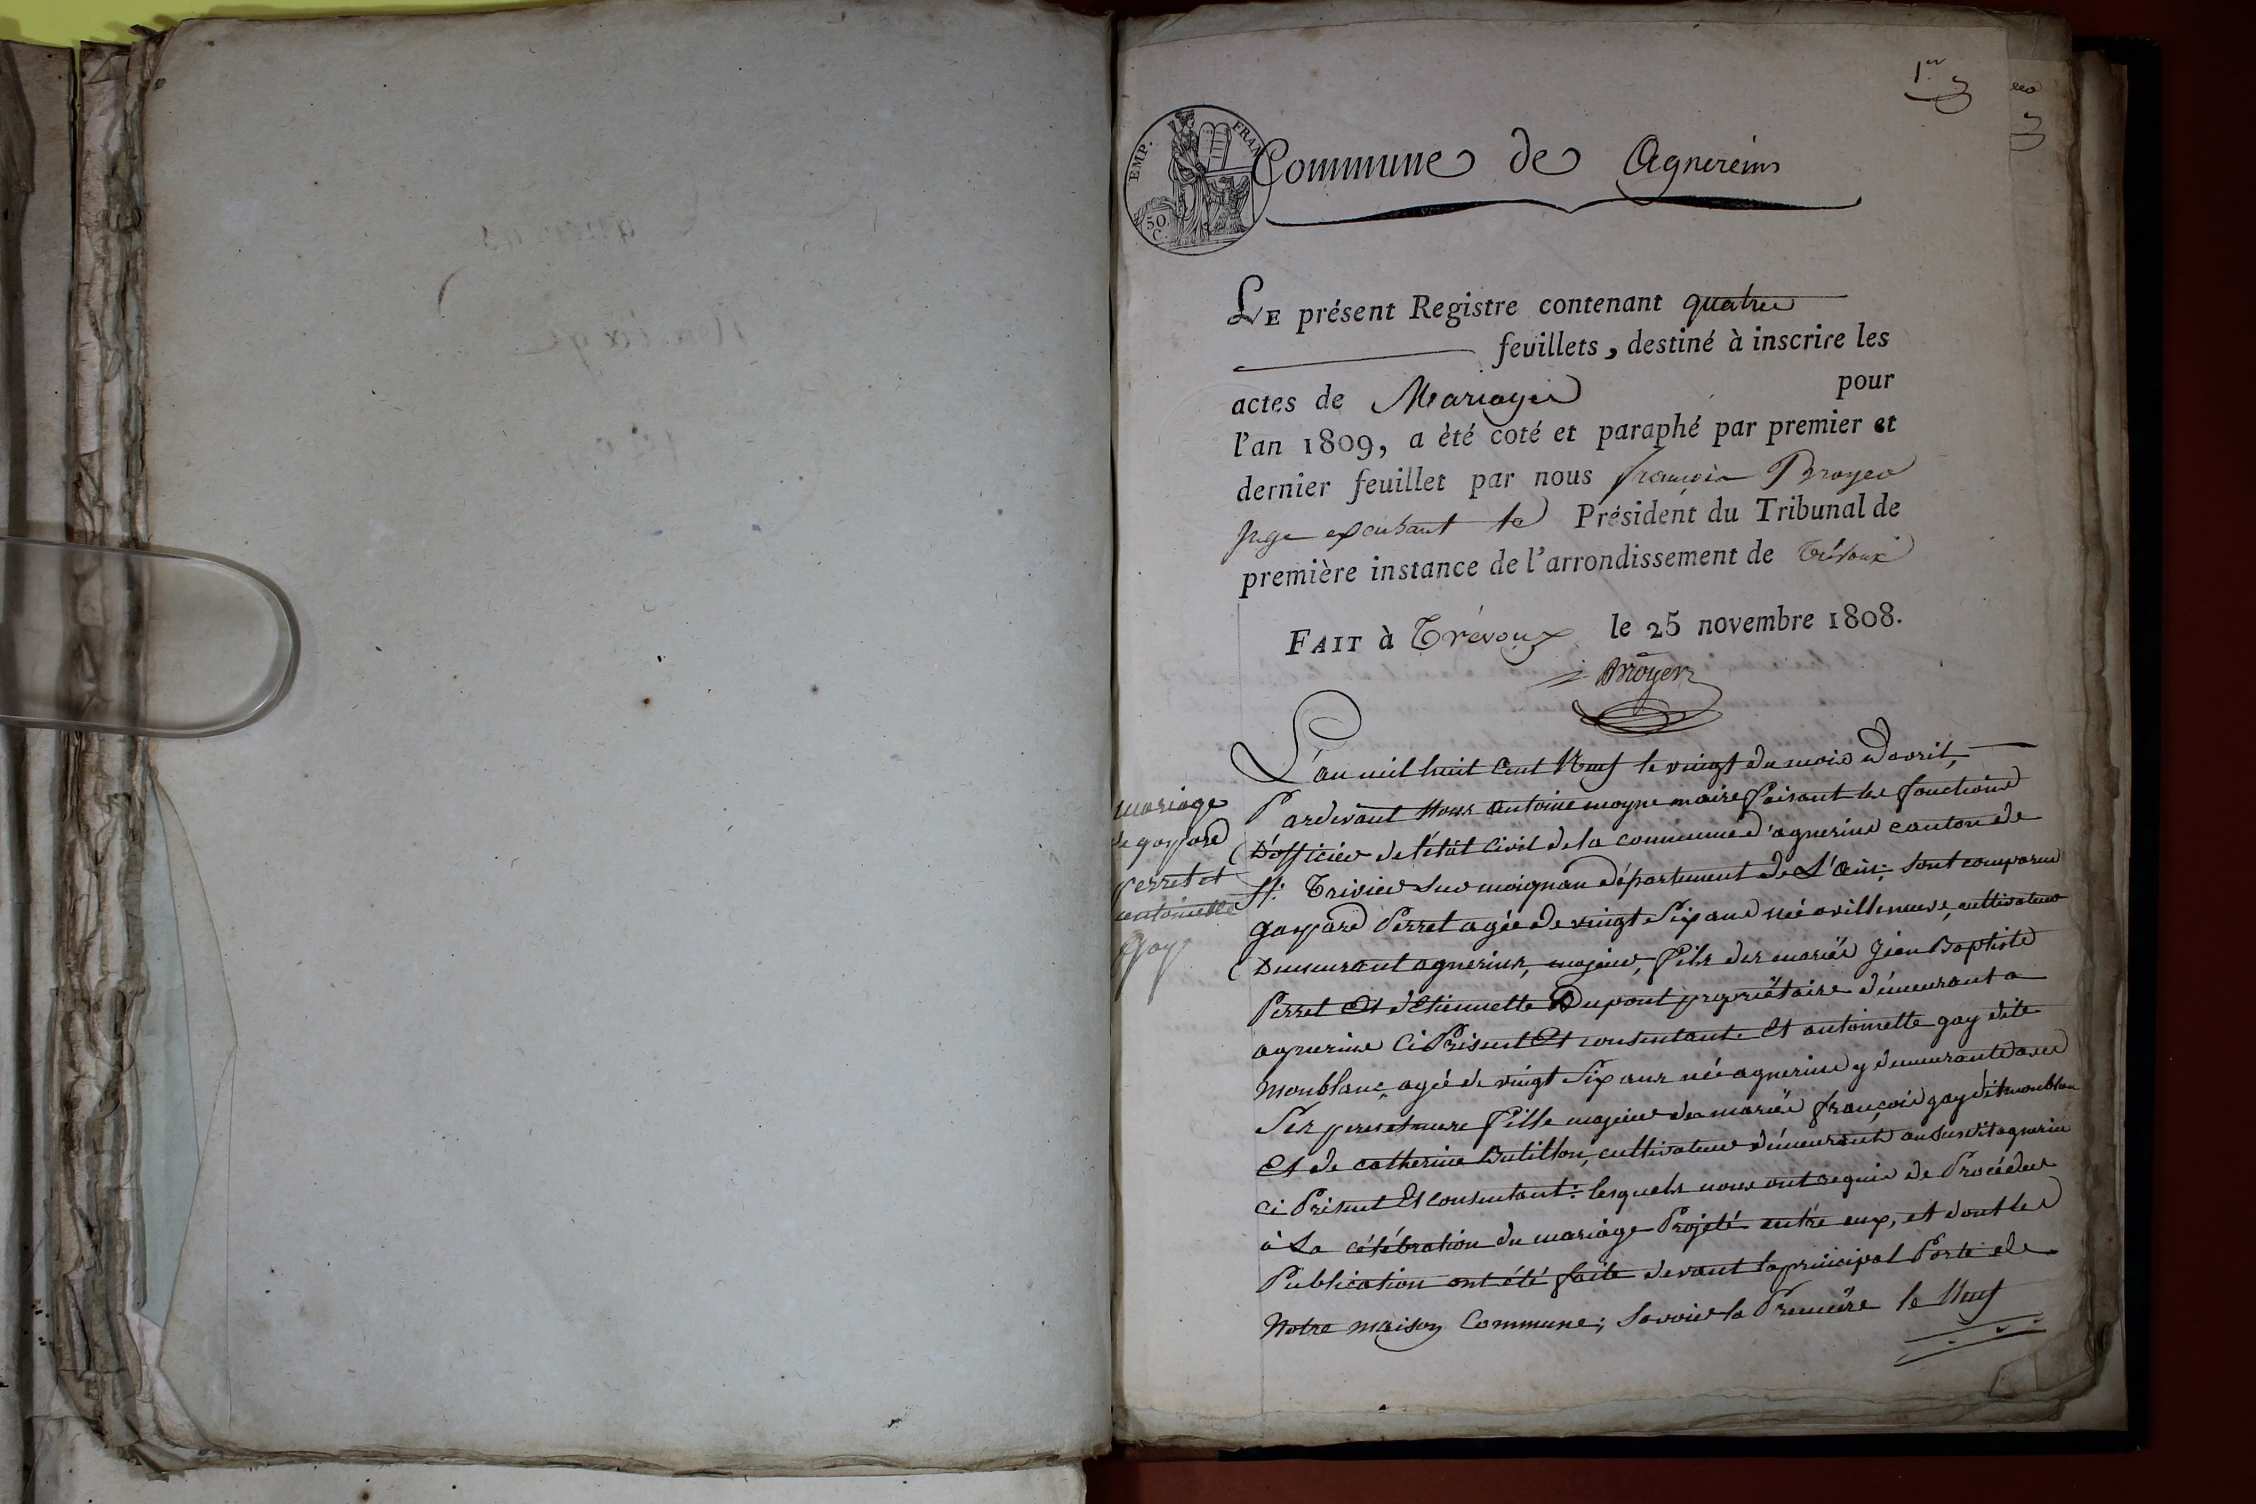 1er
EMP. FRAN
50 C.
Commune de Agnereins
LE présent Registre contenant quatre
feuillets, destiné à inscrire les
actes de Mariages pour
l'an 1809, a èté coté et paraphé par premier et
dernier feuillet par nous françois Broyer
Juge exerçant le Président du Tribunal de
première instance de l'arrondissement de Trévoux
FAIT à Trévoux le 25 novembre 1808.
Broyer
mariage
de gaspard
perret et
antoinette
gay
L'an mil huit cent Neuf le vingt du mois d'avril,
Pardevant Nous antoine moyne maire faisant les fonctions
D'officier de l'état civil de la commune d'agnerins canton de
St. Trivier sur moignan département de L'Ain, sont comparus
gaspard Perret agée de vingt Six ans née a villeneuve, cultivateur
Demeurant agnerins, majeur, fils des mariés Jean Baptiste
Perret Et d'Etiennette Dupont propriëtaire démeurant a
agnerins Ci Présent Et consentant. Et antoinette gay dite
monblanc, agée de vingt Six ans née agnerins y demeurante avec
Ses pere et mere fille majeur des mariés françois gay dit monblanc
Et de catherine Butillon, cultivateur démeurant au susdit agnerins
ci Présent Et consentant: lesquels nous ont requis de Procéder
à La célébration du mariage Projeté entre eux, et dont les
Publication ont été faite devant la principal Porte de
Notre maison Commune; Savoir la Première le Neuf